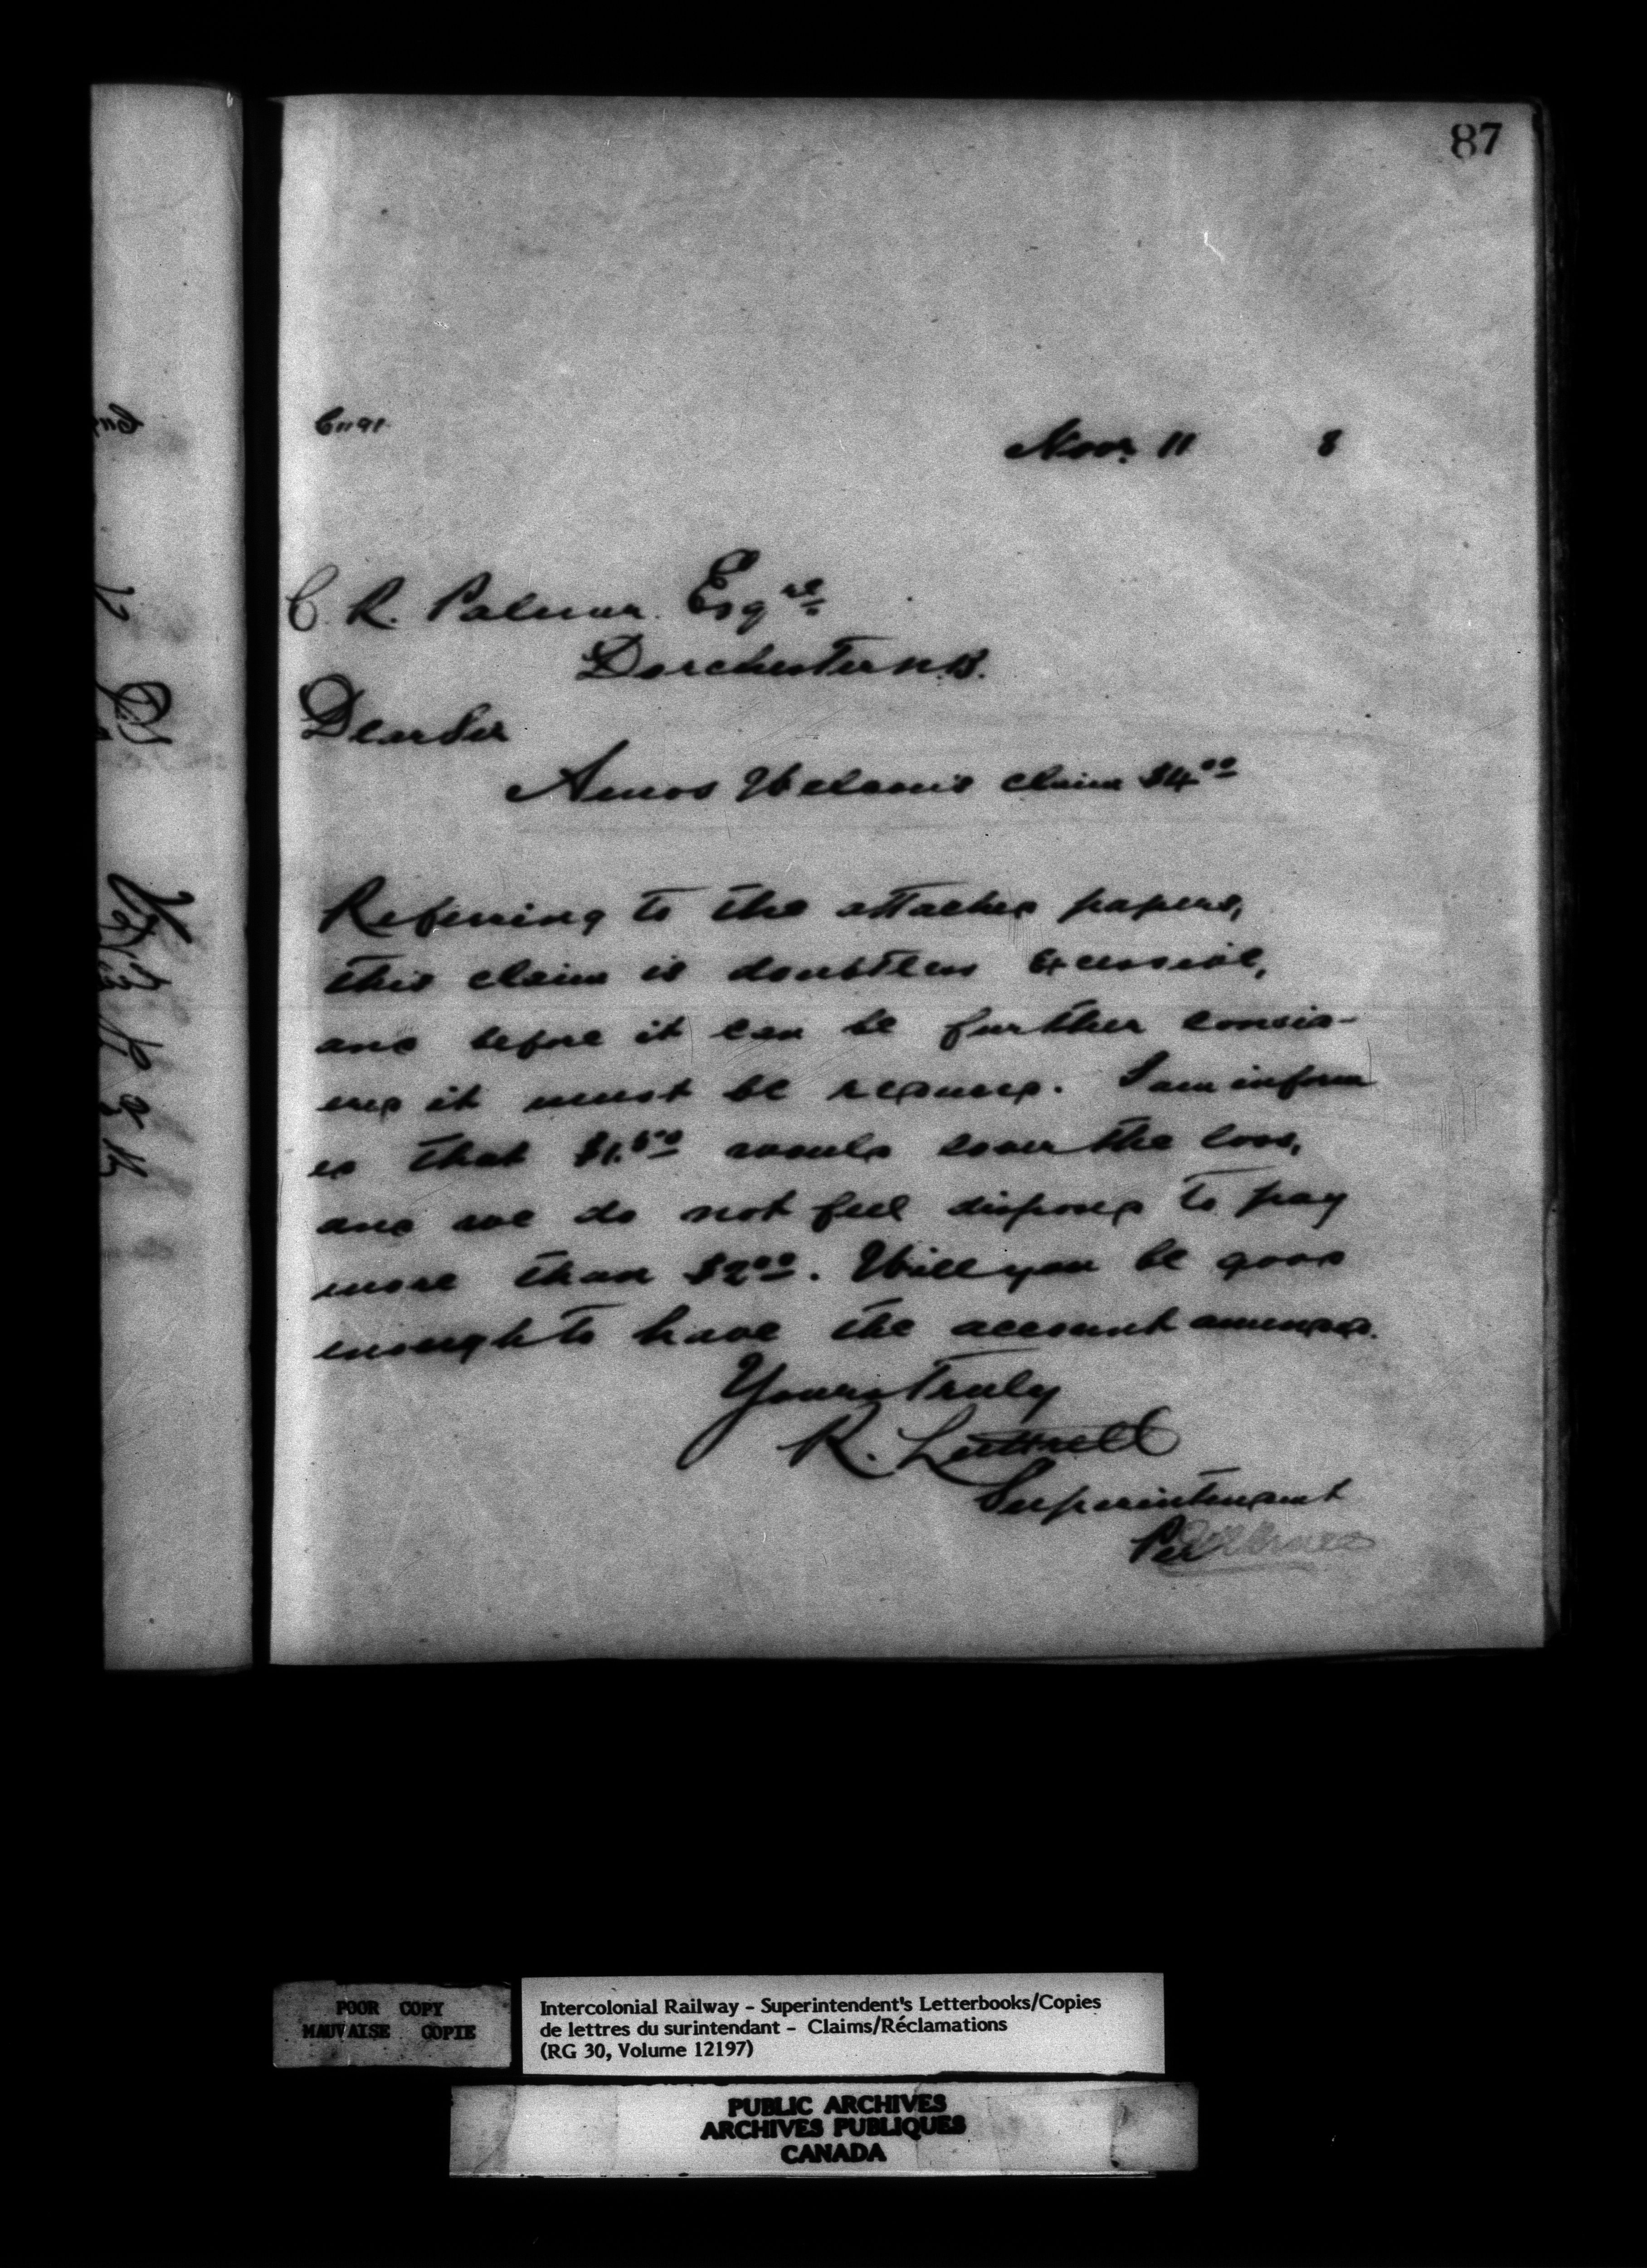 87
Nov. 11 8
C. R. Palmer Esqre
Dorchester N.B.
Dear Sir
Amos claim $4.00
Referring to the attached papers,
this claim is doubtless excessive,
and before it can be further consid-
ered it must be reduced. I am inform
ed that $1.50 would cover the loss,
and we do not feel disposed to pay
more than $2.00. Will you be good
enough to have the account amended.
Yours Truly
R. Luttrell
Superintendent
Per
POOR COPY
MAUVAISE COPIE
Intercolonial Railway - Superintendent's Letterbooks/Copies
de lettres du surintendant - Claims/Réclamations
(RG 30, Volume 12197)
PUBLIC ARCHIVES
ARCHIVES PUBLIQUES
CANADA